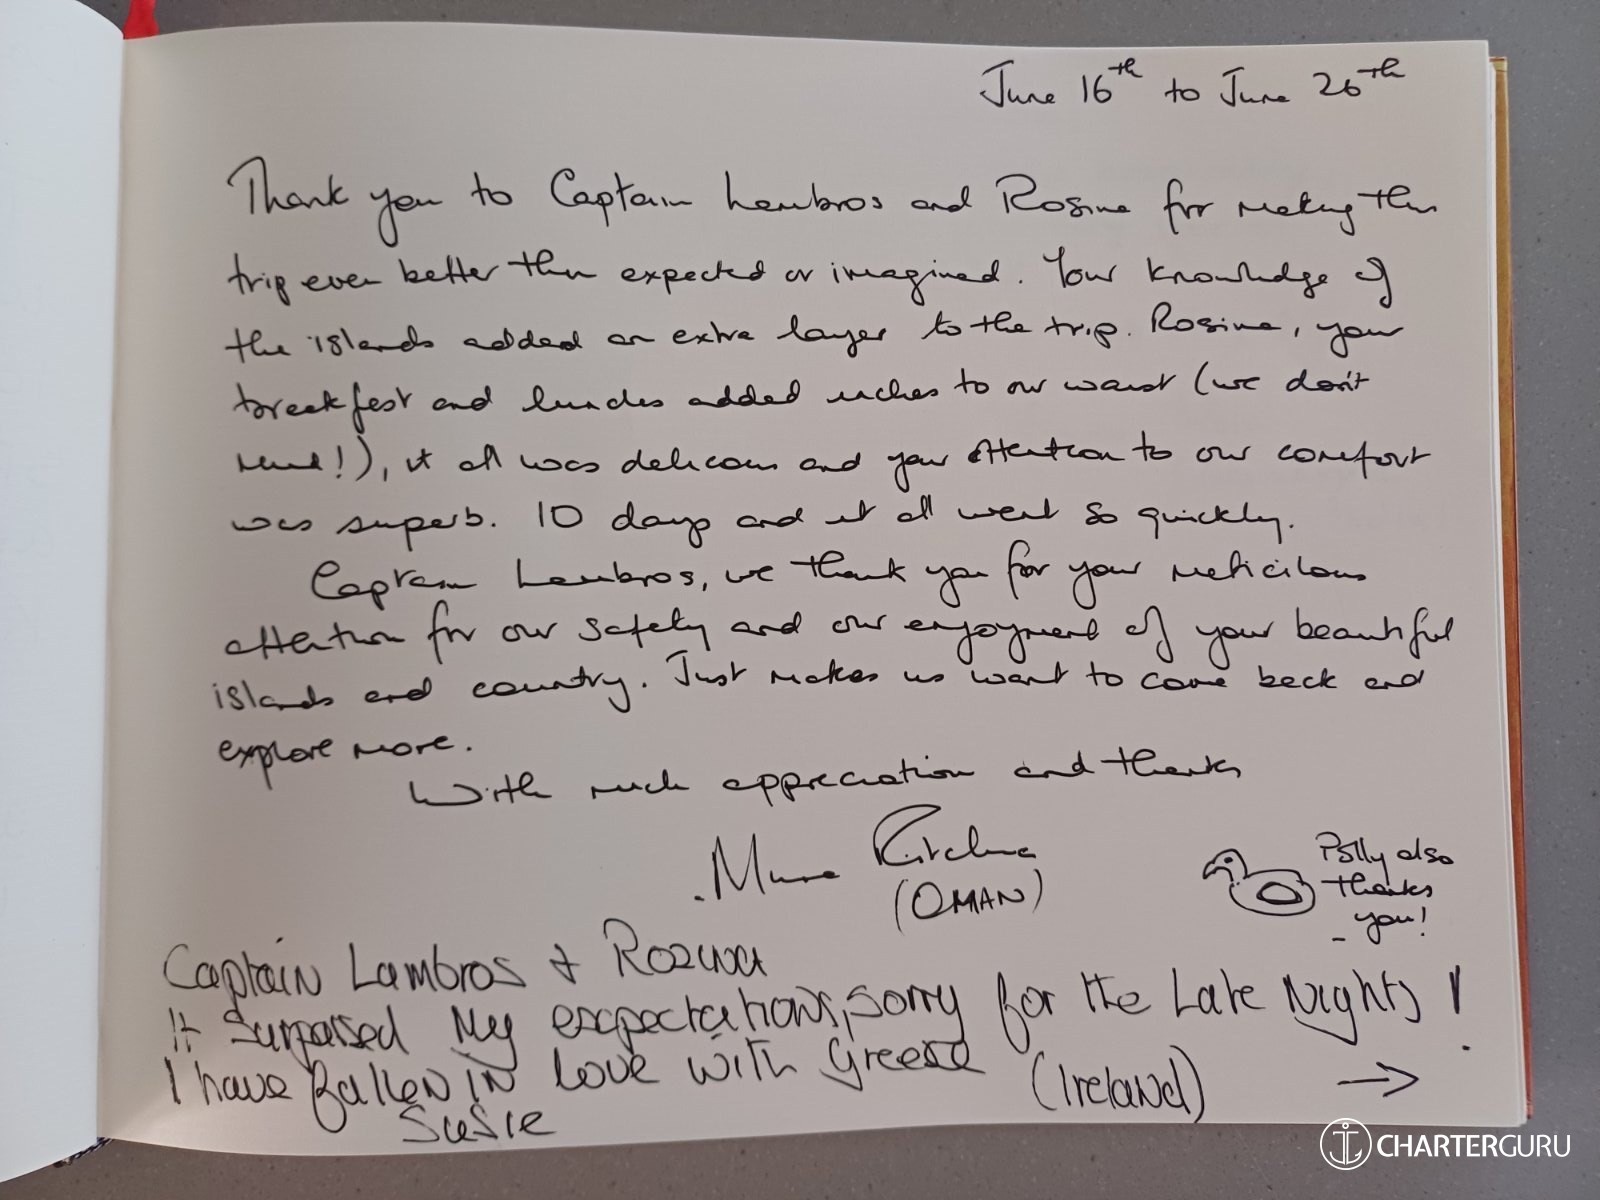 June 16th to June 26th
Thank you to Captain Lambros and Rosina for making this
trip even better than expected or imagined. Your knowledge of
the islands added an extra layer to the trip. Rosina, your
breakfast and lunches added inches to our waist (we don't
mind!), it all was delicous and your attention to our comfort
was superb. 10 days and it all went so quickly.
Captain Lambros, we thank you for your meticilous
attention for our safety and our enjoyment of your beautiful
islands and country. Just makes us want to come back and
explore more.
With much appreciation and thanks
(OMAN)
Polly also
thanks
you!
Captain Lambros + Rozina
It Surpassed My expectations, sorry for the Late Nights!
I have fallen in love with Greece
(Ireland) →
Susie
CHARTERGURU